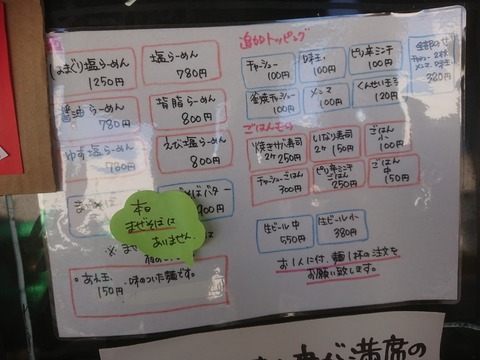 はまぐり塩らーめん
1250円
塩らーめん
780円
醤油らーめん
780円
背脂らーめん
800円
ゆず塩らーめん
780円
えび塩らーめん
800円
まぜそば
バター
900円
本日
まぜそばは
ありません
※ま
・あえ玉、味のついた麺です。
150円
追加トッピング
チャーシュー
100円
味玉
100円
ピリ辛ミンチ
100円
全部のせ
チャーシュー2枚
メンマ、味玉
380円
釜焼チャーシュー
100円
メンマ
100円
くんせい玉子
120円
ごはんもの
焼きサバ寿司
2ケ 250円
いなり寿司
2ケ 150円
ごはん
小 100円
チャーシューごはん
300円
ピリ辛ミンチ
ごはん
250円
ごはん
中 150円
生ビール中
550円
生ビール小
380円
お1人に付、麺1杯の注文を
お願い致します。
満席の